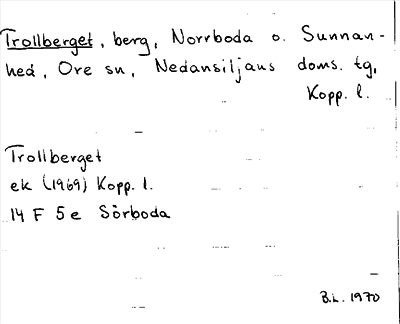 Trollberget, berg, Norrboda o. Sunnan-
hed, Ore sn, Nedansiljans doms. tg,
Kopp. l.
Trollberget
ek (1969) Kopp. l.
14 F 5e Sörboda
B.L. 1970